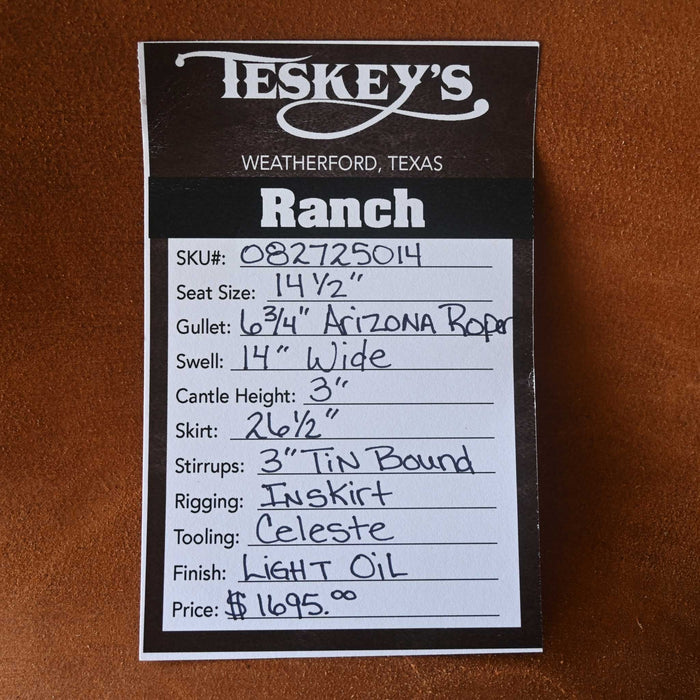 TESKEY'S
WEATHERFORD, TEXAS
Ranch
SKU#: 082725014
Seat Size: 14 1/2"
Gullet: 6 3/4" Arizona Roper
Swell: 14" Wide
Cantle Height: 3"
Skirt: 26 1/2"
Stirrups: 3" Tin Bound
Rigging: Inskirt
Tooling: Celeste
Finish: Light Oil
Price: $1695.00